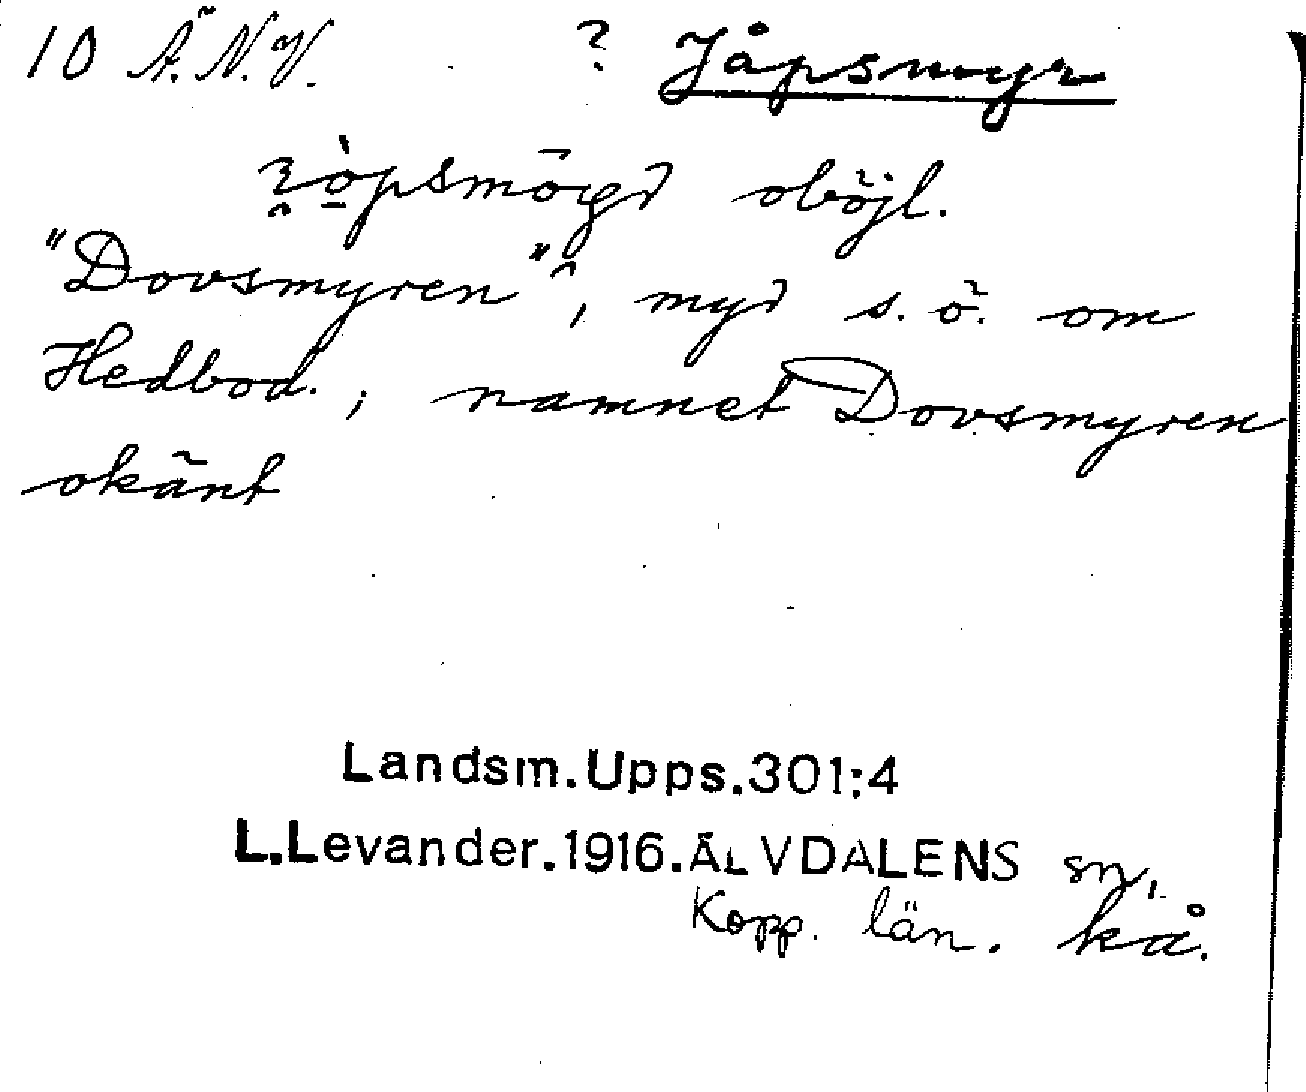 10 Ä.N.V. ? Jåpsmyr
oböjl.
"Dovsmyren", myr s.ö. om
Hedbod.; namnet Dovsmyren
okänt
Landsm.Upps.301:4
L.Levander.1916.ÄLVDALENS sn,
Kopp. län. kå.